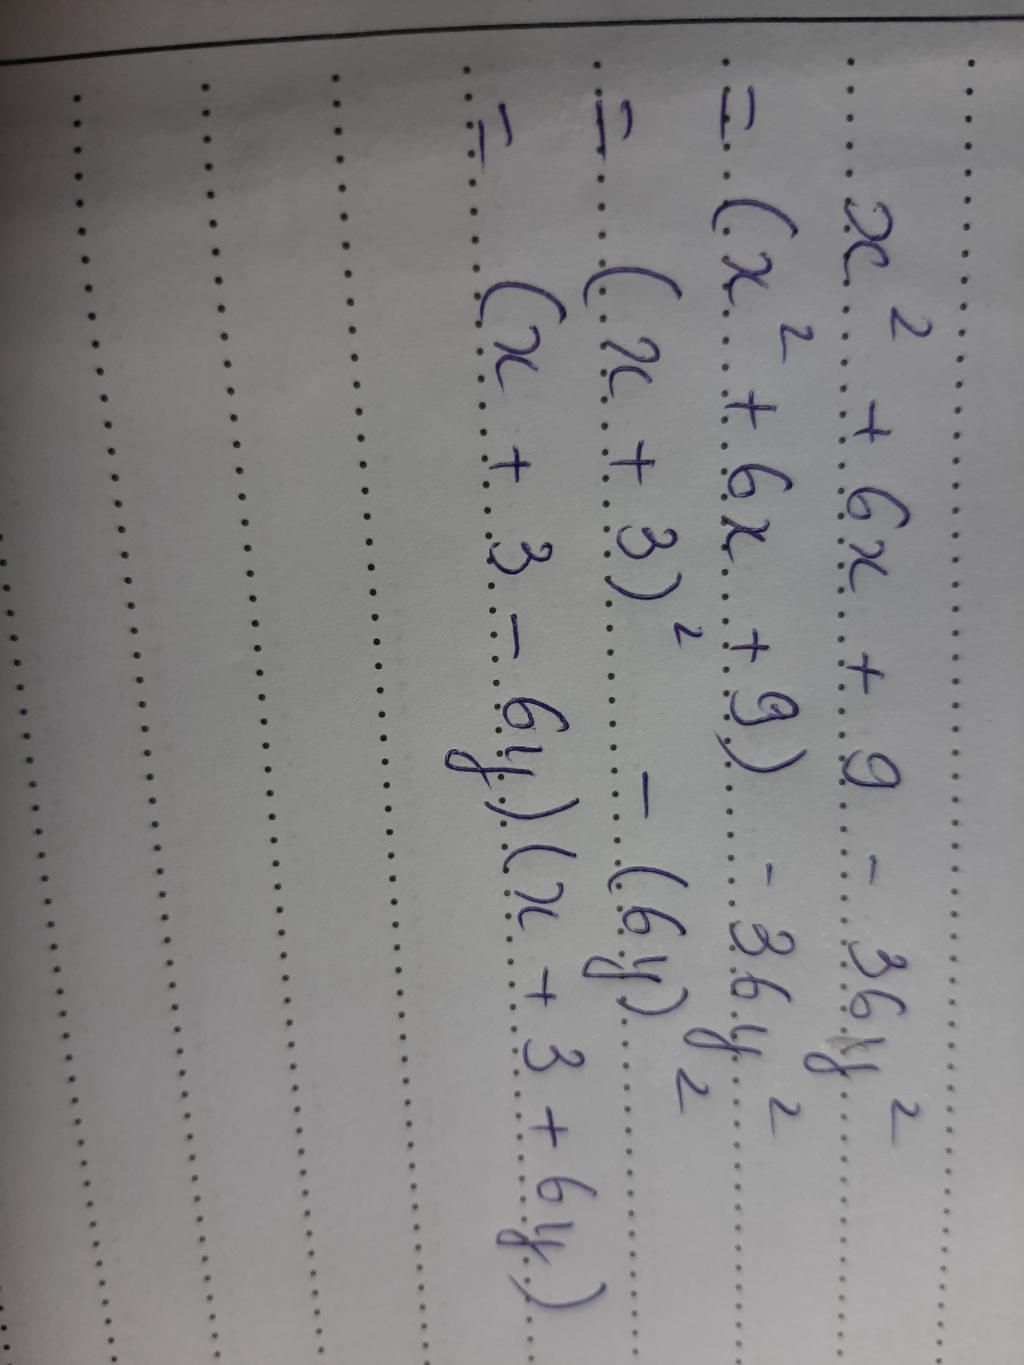 x² + 6x + 9 - 36y²
= (x² + 6x + 9) - 36y²
= (x + 3)² - (6y)²
= (x + 3 - 6y)(x + 3 + 6y)